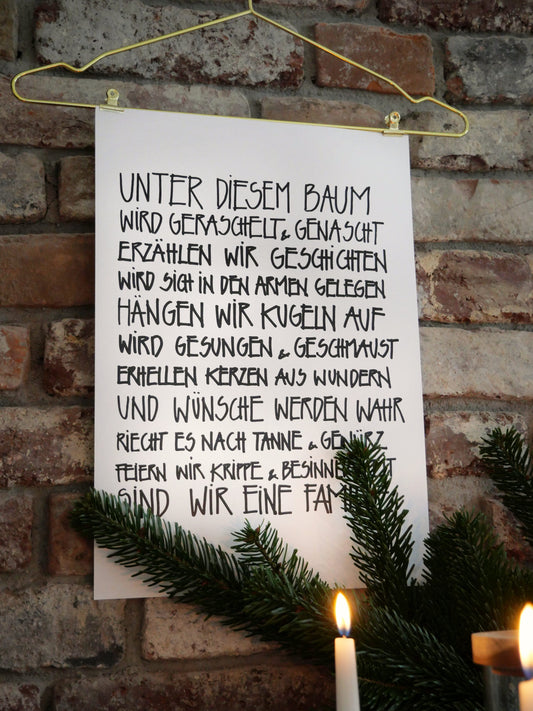 UNTER DIESEM BAUM
WIRD GERASCHELT & GENASCHT
ERZÄHLEN WIR GESCHICHTEN
WIRD SICH IN DEN ARMEN GELEGEN
HÄNGEN WIR KUGELN AUF
WIRD GESUNGEN & GESCHMAUST
ERHELLEN KERZEN AUS WUNDERN
UND WÜNSCHE WERDEN WAHR
RIECHT ES NACH TANNE & GEWÜRZ
FEIERN WIR KRIPPE &
SIND WIR EINE